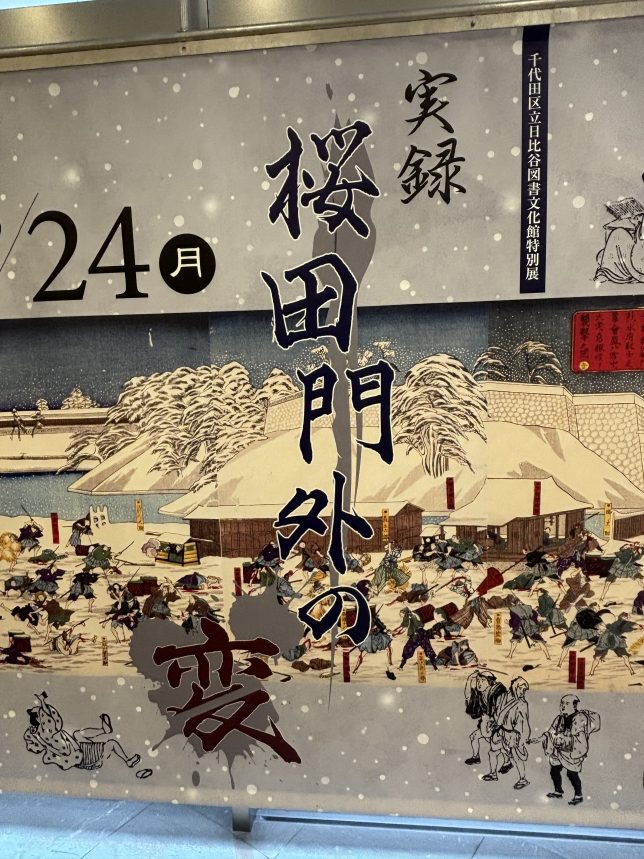 千代田区立日比谷図書文化館特別展
実録
桜田門外の
変
/24
月